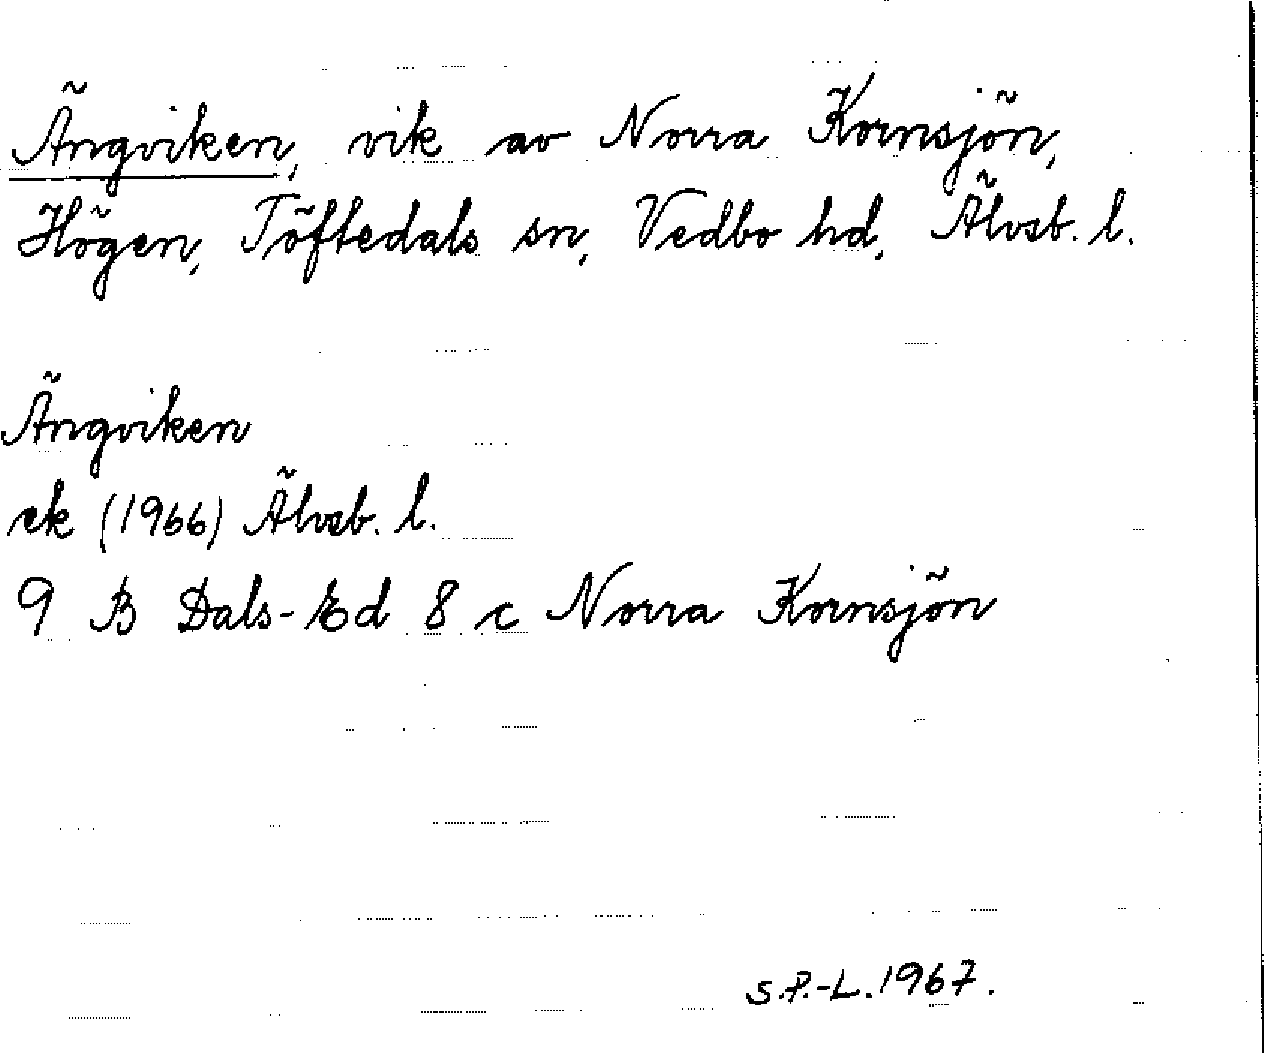 Ängviken, vik av Norra Kornsjön,
Högen, Töftedals sn, Vedbo hd, Älvsb. l.
Ängviken
ek (1966) Älvsb. l.
9 B Dals-Ed 8 c Norra Kornsjön
S.P.-L. 1967.